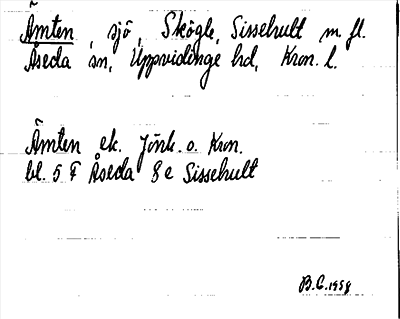 Ämten, sjö, Skögle, Sissehult m fl.
Åseda sn, Uppvidinge hd, Kron. l.
Ämten ek. Jönk. o. Kron.
bl. 5 F Åseda 8 e Sissehult
B.G. 1958